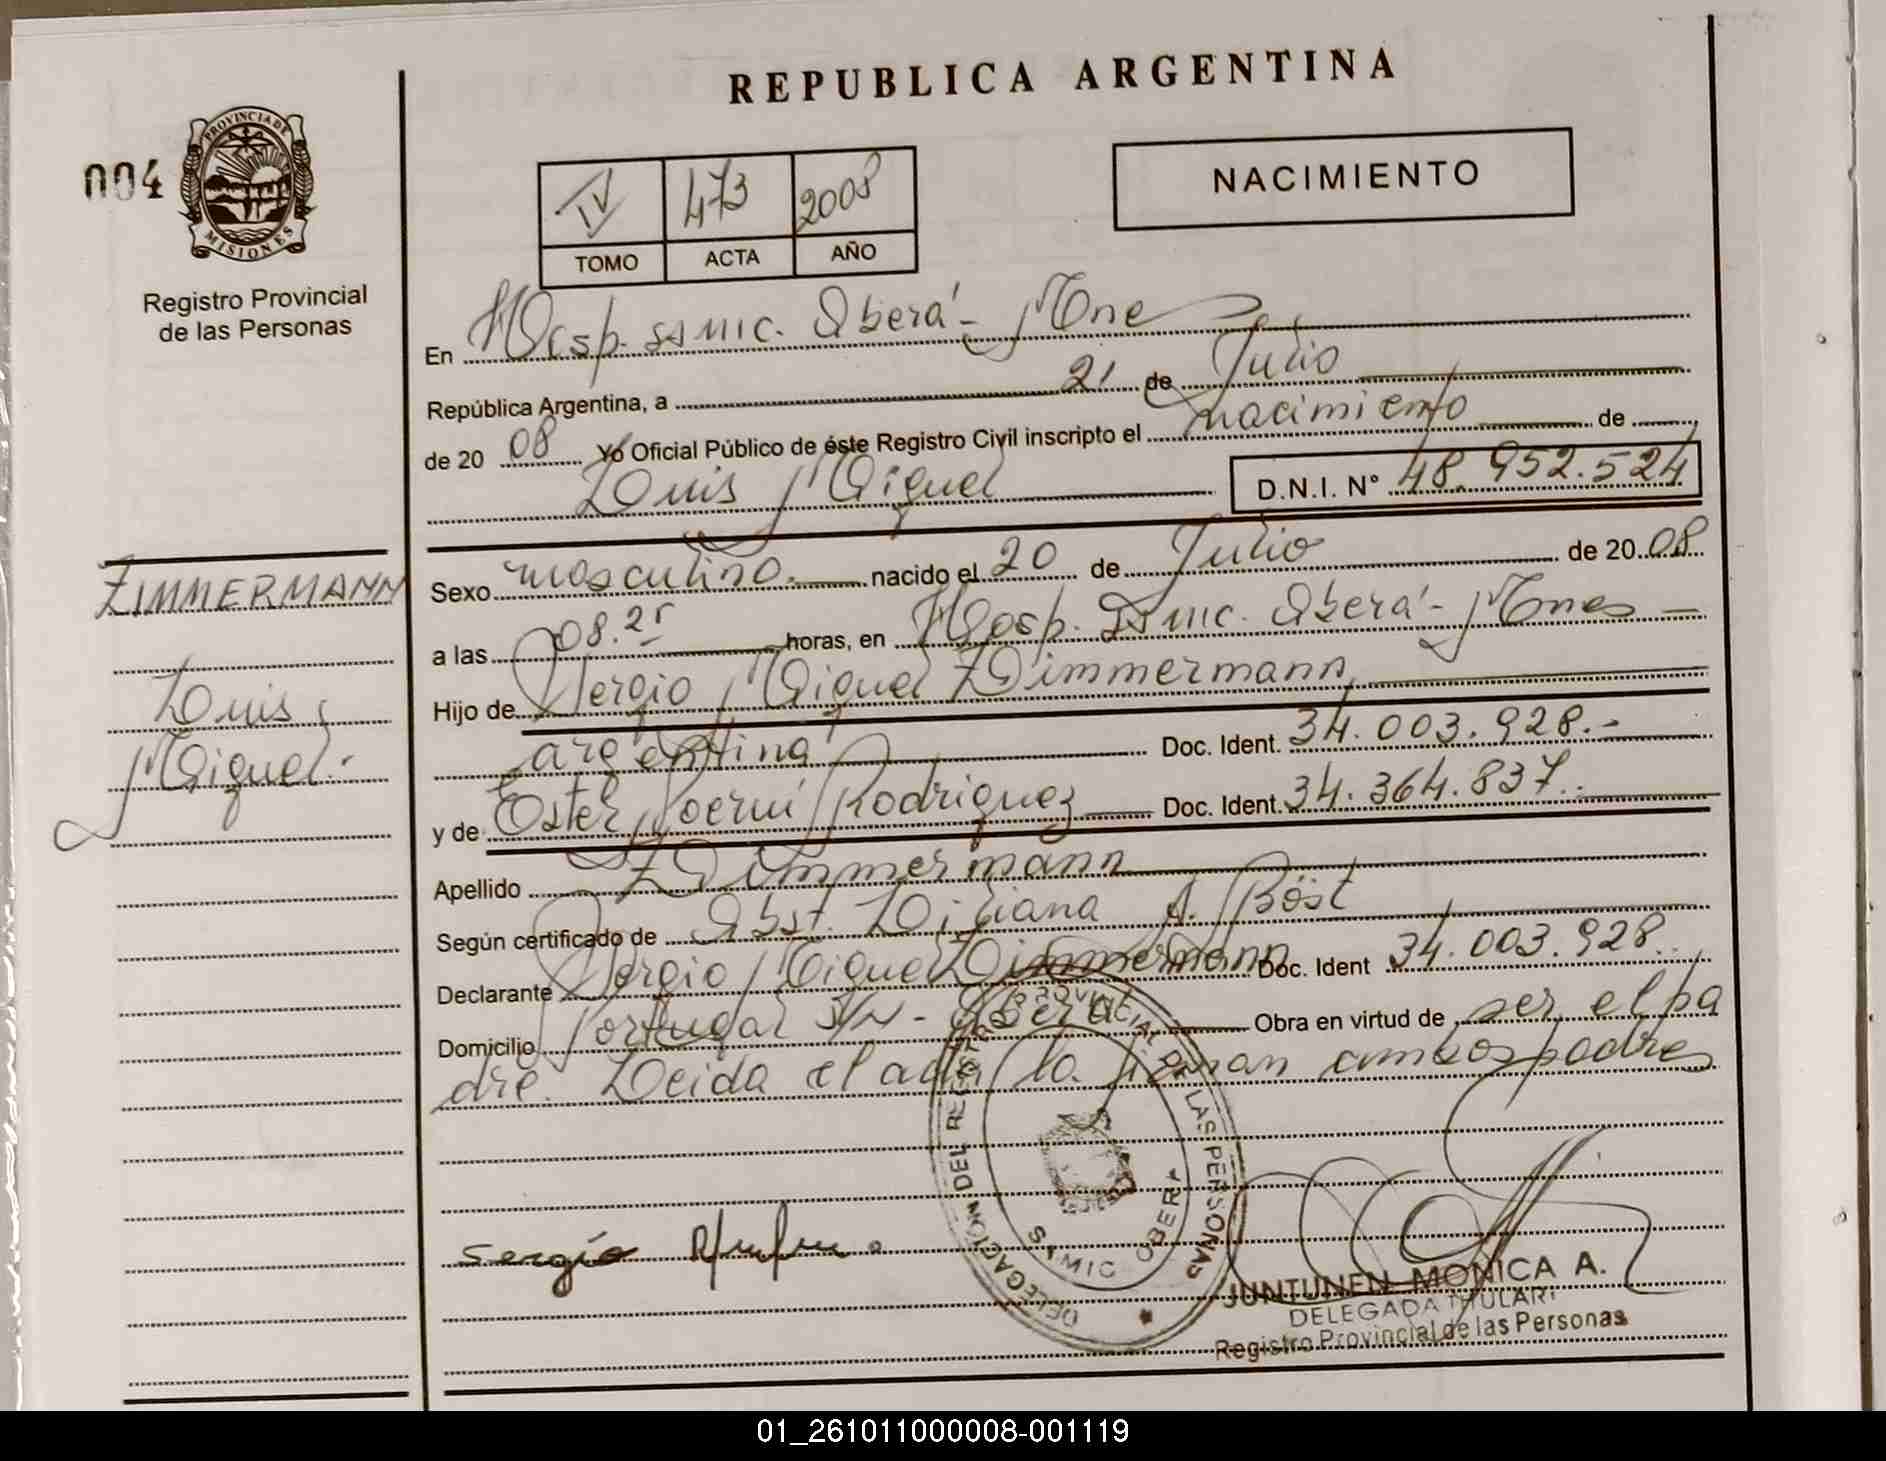 REPUBLICA ARGENTINA
004
PROVINCIA DE
MISIONES
Registro Provincial
de las Personas
IV 473 2008
TOMO ACTA AÑO
NACIMIENTO
En Hosp. SAMIC. Oberá - Mnes
República Argentina, a 21 de Julio
de 2008 Yo Oficial Público de éste Registro Civil inscripto el nacimiento de
Luis Miguel D.N.I. N° 48.952.524
Sexo masculino. nacido el 20 de Julio de 2008
a las 08.25 horas, en Hosp. SAMIC. Oberá - Mnes
Hijo de Sergio Miguel Zimmermann,
argentina Doc. Ident. 34.003.928.-
y de Ester Noemí Rodriguez Doc. Ident. 34.364.837.-
Apellido Zimmermann
Según certificado de Obst. Liliana A. Böst
Declarante Sergio Miguel Zimmermann Doc. Ident 34.003.928.
Domicilio Portugal S/N - Oberá Obra en virtud de ser el pa
dre. Leida el acta la firman ambos padres
ZIMMERMANN
Luis
Miguel.-
DELEGACION DEL REGISTRO PROVINCIAL DE LAS PERSONAS
SAMIC OBERA
Sergio
JUNTUNEN MONICA A.
DELEGADA TITULAR
Registro Provincial de las Personas
01_261011000008-001119